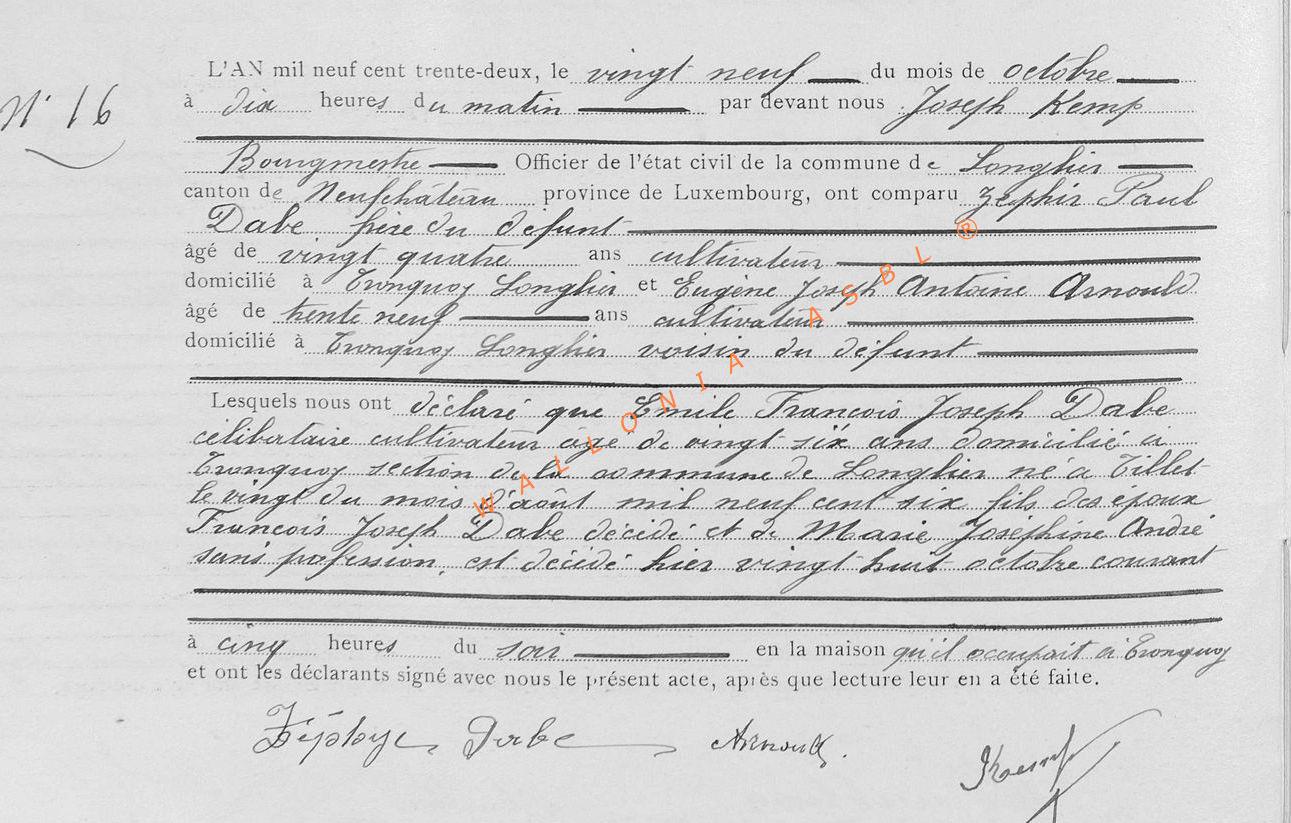 N° 16
L'AN mil neuf cent trente-deux, le vingt neuf du mois de octobre
à dix heures du matin par devant nous Joseph Kemp
Bourgmestre Officier de l'état civil de la commune de Longlier
canton de Neufchâteau province de Luxembourg, ont comparu Zéphir Paul
Dabe frère du défunt
âgé de vingt quatre ans cultivateur
domicilié à Tronquoy Longlier et Eugène Joseph Antoine Arnould
âgé de trente neuf ans cultivateur
domicilié à Tronquoy Longlier voisin du défunt
Lesquels nous ont déclaré que Emile François Joseph Dabe
célibataire cultivateur âgé de vingt six ans domicilié à
Tronquoy section de la commune de Longlier né à Tillet
le vingt du mois d'août mil neuf cent six fils des époux
François Joseph Dabe décédé et de Marie Joséphine André
sans profession, est décédé hier vingt huit octobre courant
à cinq heures du soir en la maison qu'il occupait à Tronquoy
et ont les déclarants signé avec nous le présent acte, après que lecture leur en a été faite.
Dabe Arnould
Kemp
WALLONIA ASBL ®